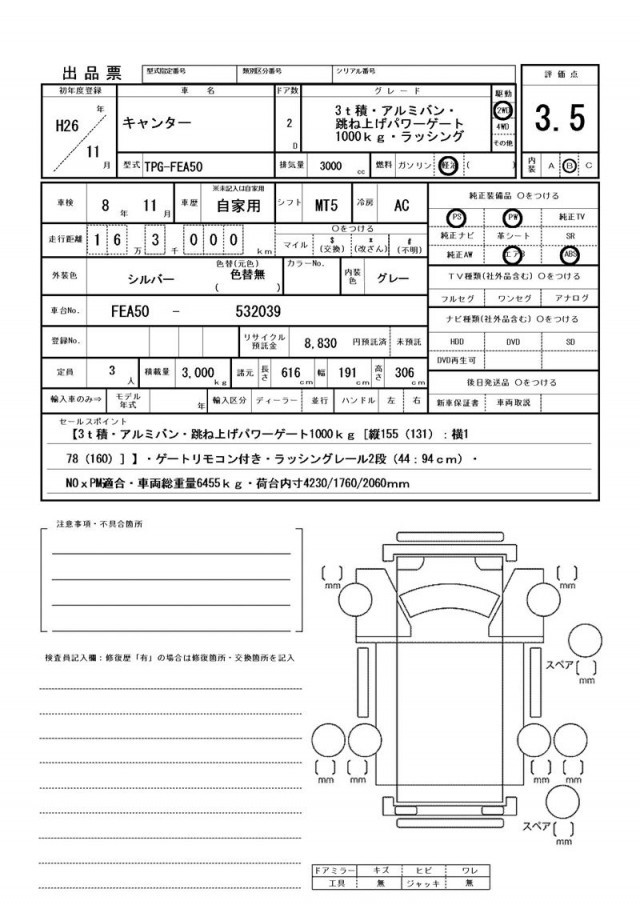 出品票
型式指定番号 類別区分番号 シリアル番号
評価点
3.5
初年度登録 車名 ドア数 グレード 駆動
H26年 11月
キャンター
2D
3t積・アルミバン・
跳ね上げパワーゲート
1000kg・ラッシング
2WD
4WD
その他
型式 TPG-FEA50 排気量 3000cc 燃料 ガソリン 軽油 ( ) 内装 A B C
車検 8年 11月 車歴 ※未記入は自家用 自家用 シフト MT5 冷房 AC
走行距離 16万3千000km
○をつける
マイル $(交換) *(改ざん) #(不明)
外装色 シルバー 色替(元色) 色替無 ( ) カラーNo. 内装色 グレー
車台No. FEA50 - 532039
登録No. リサイクル預託金 8,830 円預託済 未預託
定員 3人 積載量 3,000kg 諸元 長さ 616cm 幅 191cm 高さ 306cm
輸入車のみ⇒ モデル年式 年 輸入区分 ディーラー 並行 ハンドル 左 右
純正装備品 ○をつける
PS PW 純正TV
純正ナビ 革シート SR
純正AW エアB ABS
TV種類(社外品含む) ○をつける
フルセグ ワンセグ アナログ
ナビ種類(社外品含む) ○をつける
HDD DVD SD
DVD再生可
後日発送品 ○をつける
新車保証書 車両取説
セールスポイント
【3t積・アルミバン・跳ね上げパワーゲート1000kg[縦155(131):横1
78(160)]】・ゲートリモコン付き・ラッシングレール2段(44:94cm)・
NOxPM適合・車両総重量6455kg・荷台内寸4230/1760/2060mm
注意事項・不具合箇所
検査員記入欄:修復歴「有」の場合は修復箇所・交換箇所を記入
[ ] mm
[ ] mm
スペア [ ] mm
[ ] mm
[ ] mm
[ ] mm
[ ] mm
スペア [ ] mm
ドアミラー キズ ヒビ ワレ
工具 無 ジャッキ 無